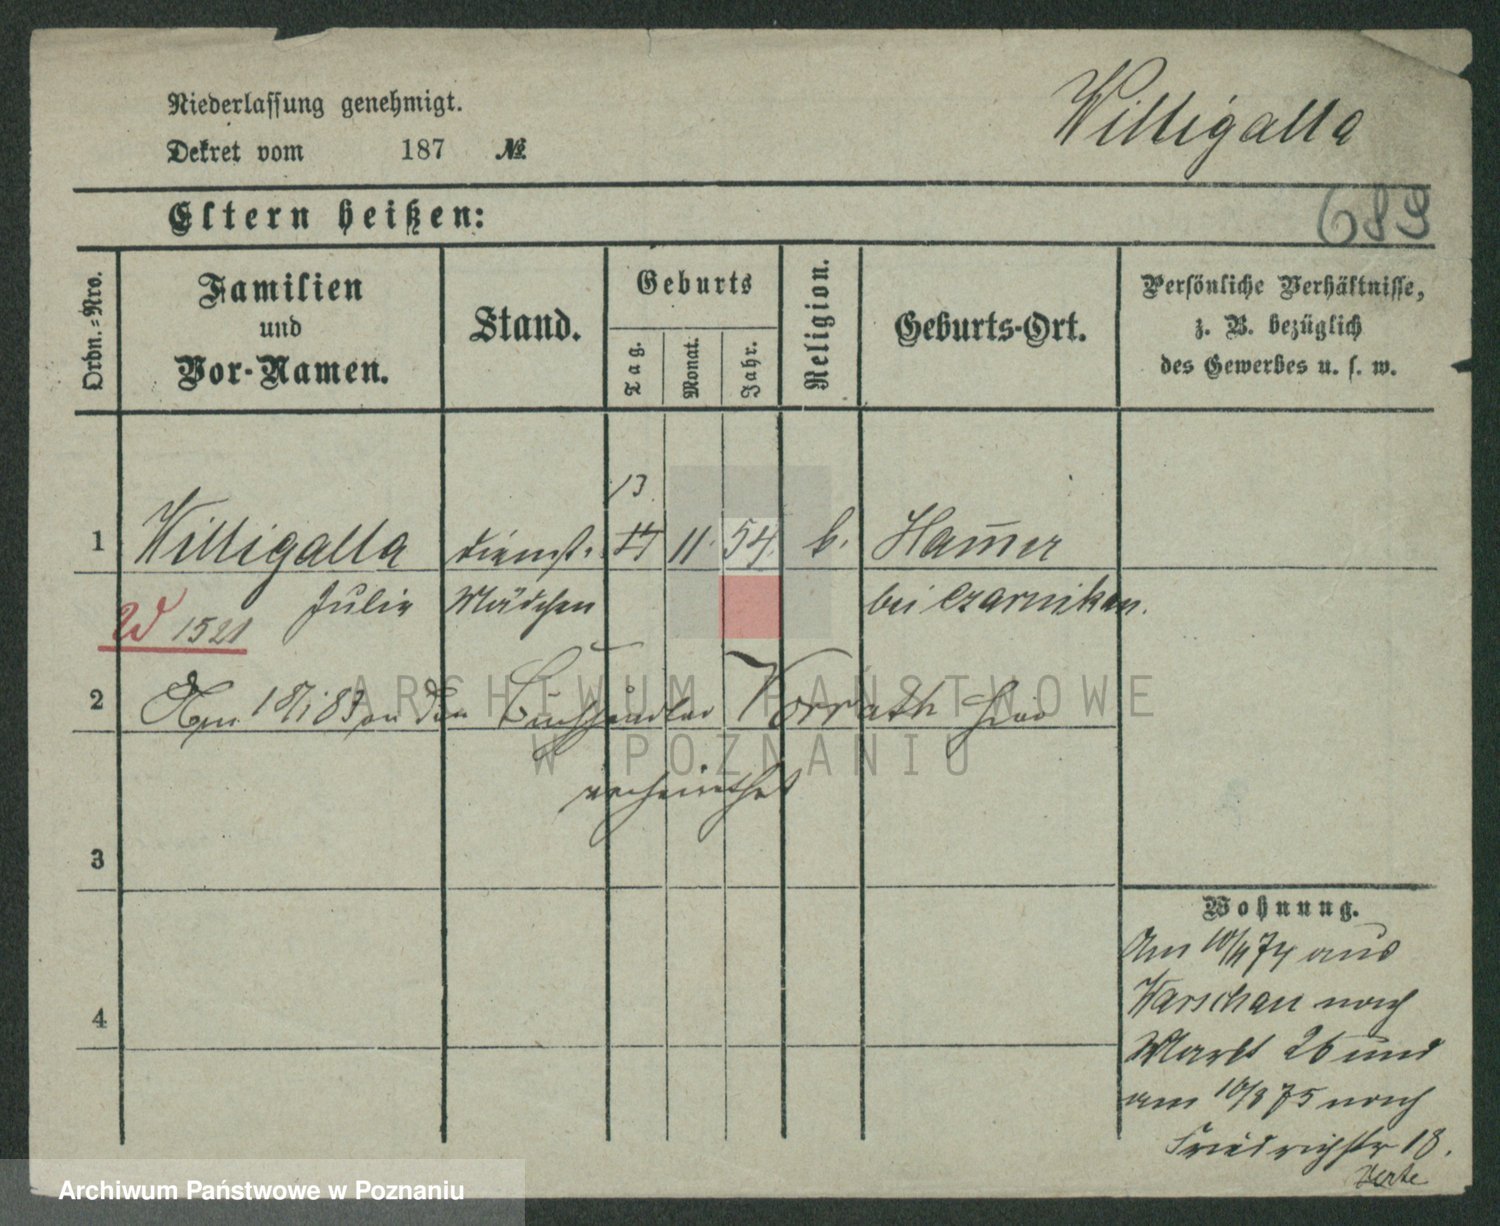 Niederlassung genehmigt.
Dekret vom 187 №
Willigalla
689
Eltern heißen:
Ordn.=Nro.
Familien
und
Vor-Namen.
Stand.
Geburts
Tag.
Monat.
Jahr.
Religion.
Geburts-Ort.
Persönliche Verhältnisse,
z. B. bezüglich
des Gewerbes u. s. w.
13
1 Willigalla dienst- 14 11. 54. k. Ham̄er
Julie Mädchen bei Czarnikau.
W 1521
2 Am 18/1 83 an den Buchhändler Vorrath hier
verheirathet
3
4
Wohnung.
Am 10/4 74 aus
Warschau nach
Markt 26 und
am 10/8 75 nach
Friedrichstr 18.
ARCHIWUM PAŃSTWOWE
W POZNANIU
Archiwum Państwowe w Poznaniu